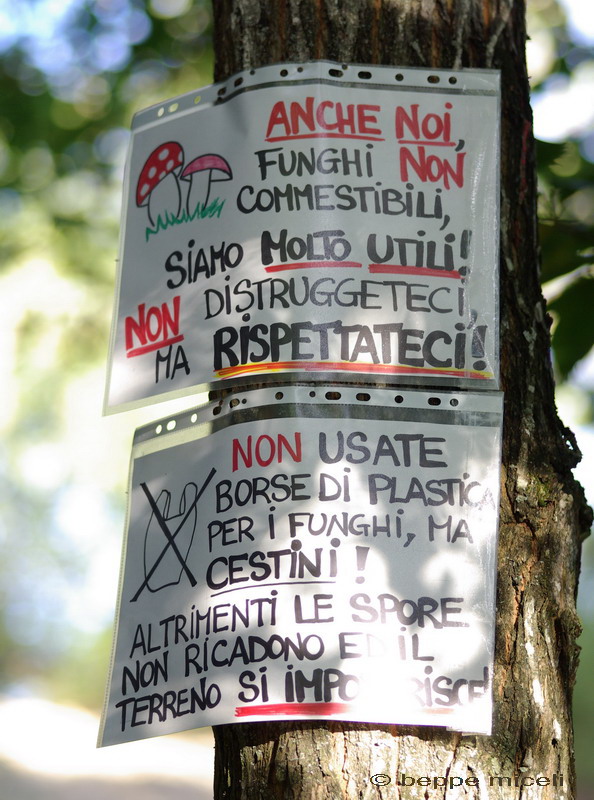 ANCHE NOI,
FUNGHI NON
COMMESTIBILI,
SIAMO MOLTO UTILI!
NON DISTRUGGETECI,
MA RISPETTATECI!
NON USATE
BORSE DI PLASTICA
PER I FUNGHI, MA
CESTINI!
ALTRIMENTI LE SPORE
NON RICADONO ED IL
TERRENO SI
© beppe miceli